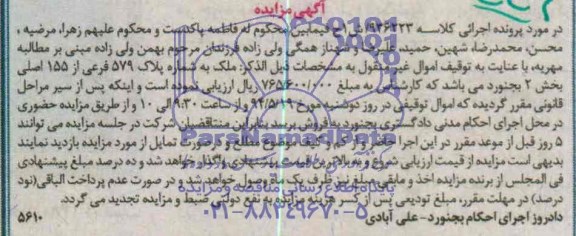 آگهی مزایده
در مورد پرونده اجرائی کلاسه ۹۳۶۲۲۳ ش اح فیمابین محکوم له فاطمه پاکدست و محکوم علیهم زهرا، مرضیه ،
محسن، محمدرضا، شهین، حمید، علیرضا، مهناز همگی ولی زاده فرزندان مرحوم بهمن ولی زاده مبنی بر مطالبه
مهریه، با عنایت به توقیف اموال غیر منقول به مشخصات ذیل الذکر: ملک به شماره پلاک ۵۷۹ فرعی از ۱۵۵ اصلی
بخش ۲ بجنورد می باشد که کارشناس به مبلغ ۷۶۵/۶۰۰/۰۰۰ ریال ارزیابی نموده است و اینکه پس از سیر مراحل
قانونی مقرر گردیده که اموال توقیفی در روز دوشنبه مورخ ۹۴/۵/۱۹ و از ساعت ۹:۳۰ الی ۱۰ و از طریق مزایده حضوری
در محل اجرای احکام مدنی دادگستری بجنورد به فروش برسد بنابراین متقاضیان شرکت در جلسه مزایده می توانند
۵ روز قبل از موعد مقرر در این اجرا حاضر و از کم و کیف موضوع مطلع و درصورت تمایل از مورد مزایده بازدید نمایند
بدیهی است مزایده از قیمت ارزیابی شروع و به بالاترین قیمت پیشنهادی واگذار خواهد شد و ده درصد مبلغ پیشنهادی
فی المجلس از برنده مزایده اخذ و مابقی مبلغ نیز ظرف یک ماه وصول خواهد شد و در صورت عدم پرداخت الباقی (نود
درصد) در مهلت مقرر، مبلغ تودیعی پس از کسر هزینه مزایده به نفع دولت ضبط و مزایده تجدید می گردد.
دادورز اجرای احکام بجنورد- علی آبادی
۵۶۱۰
ParsNamadData
پایگاه اطلاع رسانی مناقصه و مزایده
۰۲۱-۸۸۳۴۹۶۷۰-۵